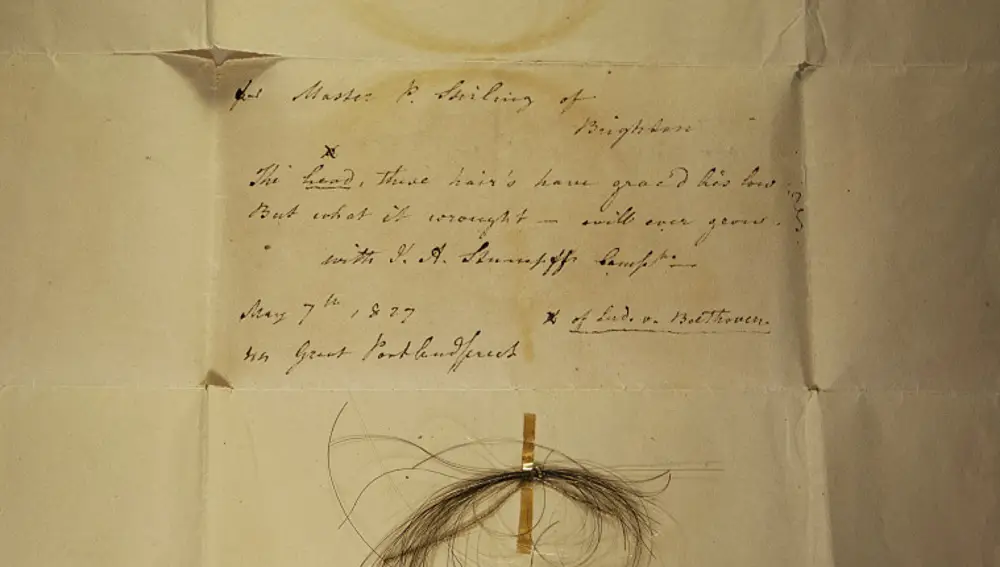 for Master P. Stirling of
Brighton
x
The head, these hair's have grac'd lies low
But what it wrought — will ever grow.
with J. A. Stumpff's Compts. —
May 7th, 1827 x of Lud. v. Beethoven.
Great Portlandstreet